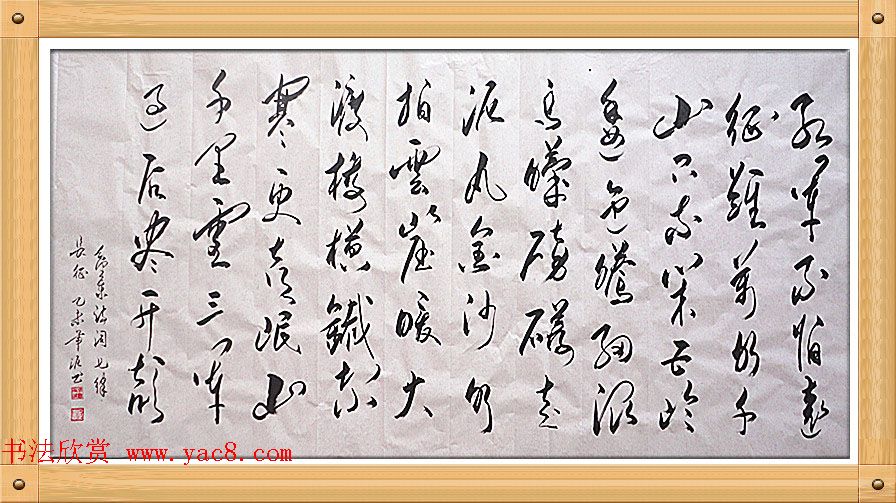 红军不怕远
征難萬水千
山只等闲五岭
逶迤騰細浪
乌蒙磅礴走
泥丸金沙水
拍雲崖暖大
渡橋橫鐵索
寒更喜岷山
千里雪三军
过后尽开颜
毛泽东诗词七律
长征 乙未年 书
书法欣赏 www.yac8.com